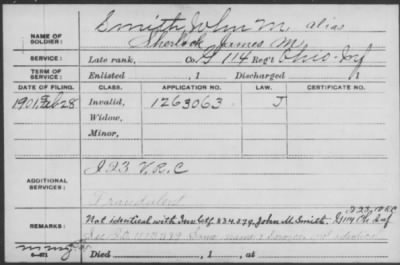 Smith, John M. alias
NAME OF SOLDIER: Sherlock, James M.
SERVICE: Late rank, Co. G 114 Reg't Ohio Inf
TERM OF SERVICE: Enlisted , 1 Discharged , 1
DATE OF FILING. CLASS. APPLICATION NO. LAW. CERTIFICATE NO.
1901 Feb 28 Invalid, 1263063 J
Widow,
Minor,
ADDITIONAL SERVICES: I 23 V.R.C
Fraudulent
I 23 V.R.C
REMARKS: Not identical with Inv Ctf 834.579, John M. Smith. G 114 Inf
Died , 1 , at